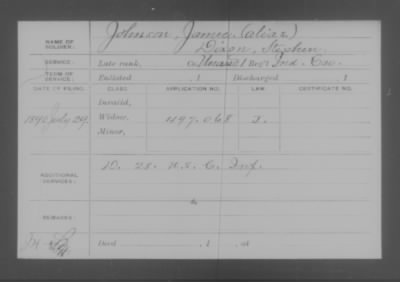 NAME OF SOLDIER: Johnson, James (alias)
Dixon, Stephen
SERVICE: Late rank, Ind. Cav.
TERM OF SERVICE: Enlisted , 1 Discharged , 1
DATE OF FILING. CLASS. APPLICATION NO. LAW. CERTIFICATE NO.
Invalid,
1890 July 29, Widow, 497.068
Minor,
ADDITIONAL SERVICES: D. 28. U.S.C. Inf.
REMARKS:
Died , 1 , at